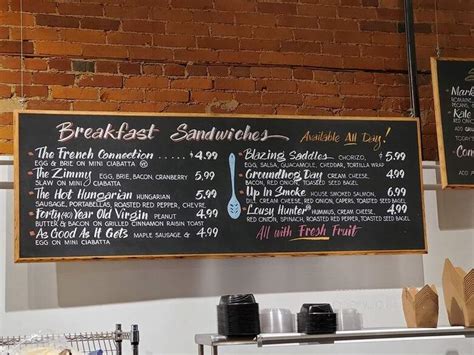 Breakfast Sandwiches Available All Day!
The French Connection $ 4.99
EGG & BRIE ON MINI CIABATTA
The Zimmy EGG, BRIE, BACON, CRANBERRY 5.99
SLAW ON MINI CIABATTA
The Hot Hungarian HUNGARIAN 5.99
SAUSAGE, PORTABELLAS, ROASTED RED PEPPER, CHEVRE.
Forty(40) Year Old Virgin PEANUT 4.99
BUTTER & BACON ON GRILLED CINNAMON RAISIN TOAST
As Good As It Gets MAPLE SAUSAGE & 4.99
EGG ON MINI CIABATTA
Blazing Saddles CHORIZO, $ 5.99
EGG, SALSA, GUACAMOLE, CHEDDAR, TORTILLA WRAP
Groundhog Day CREAM CHEESE, 4.99
BACON, RED ONION, TOASTED SEED BAGEL
Up In Smoke HOUSE SMOKED SALMON, 6.99
DILL CREAM CHEESE, RED ONION, CAPERS, TOASTED SEED BAGEL
Lousy Hunter HUMMUS, CREAM CHEESE, 4.99
RED ONION, SPINACH, ROASTED RED PEPPER, TOASTED SEED BAGEL
All with Fresh Fruit